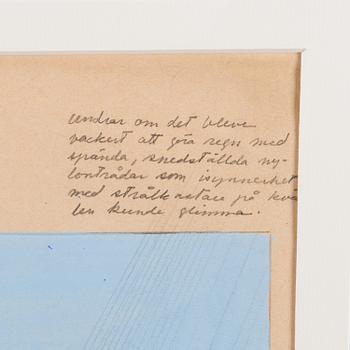 undrar om det bleve
vackert att göra regn med
spända, snedställda ny-
lontrådar som isynnerhet
med strålkastare på kvä
len kunde glimma.